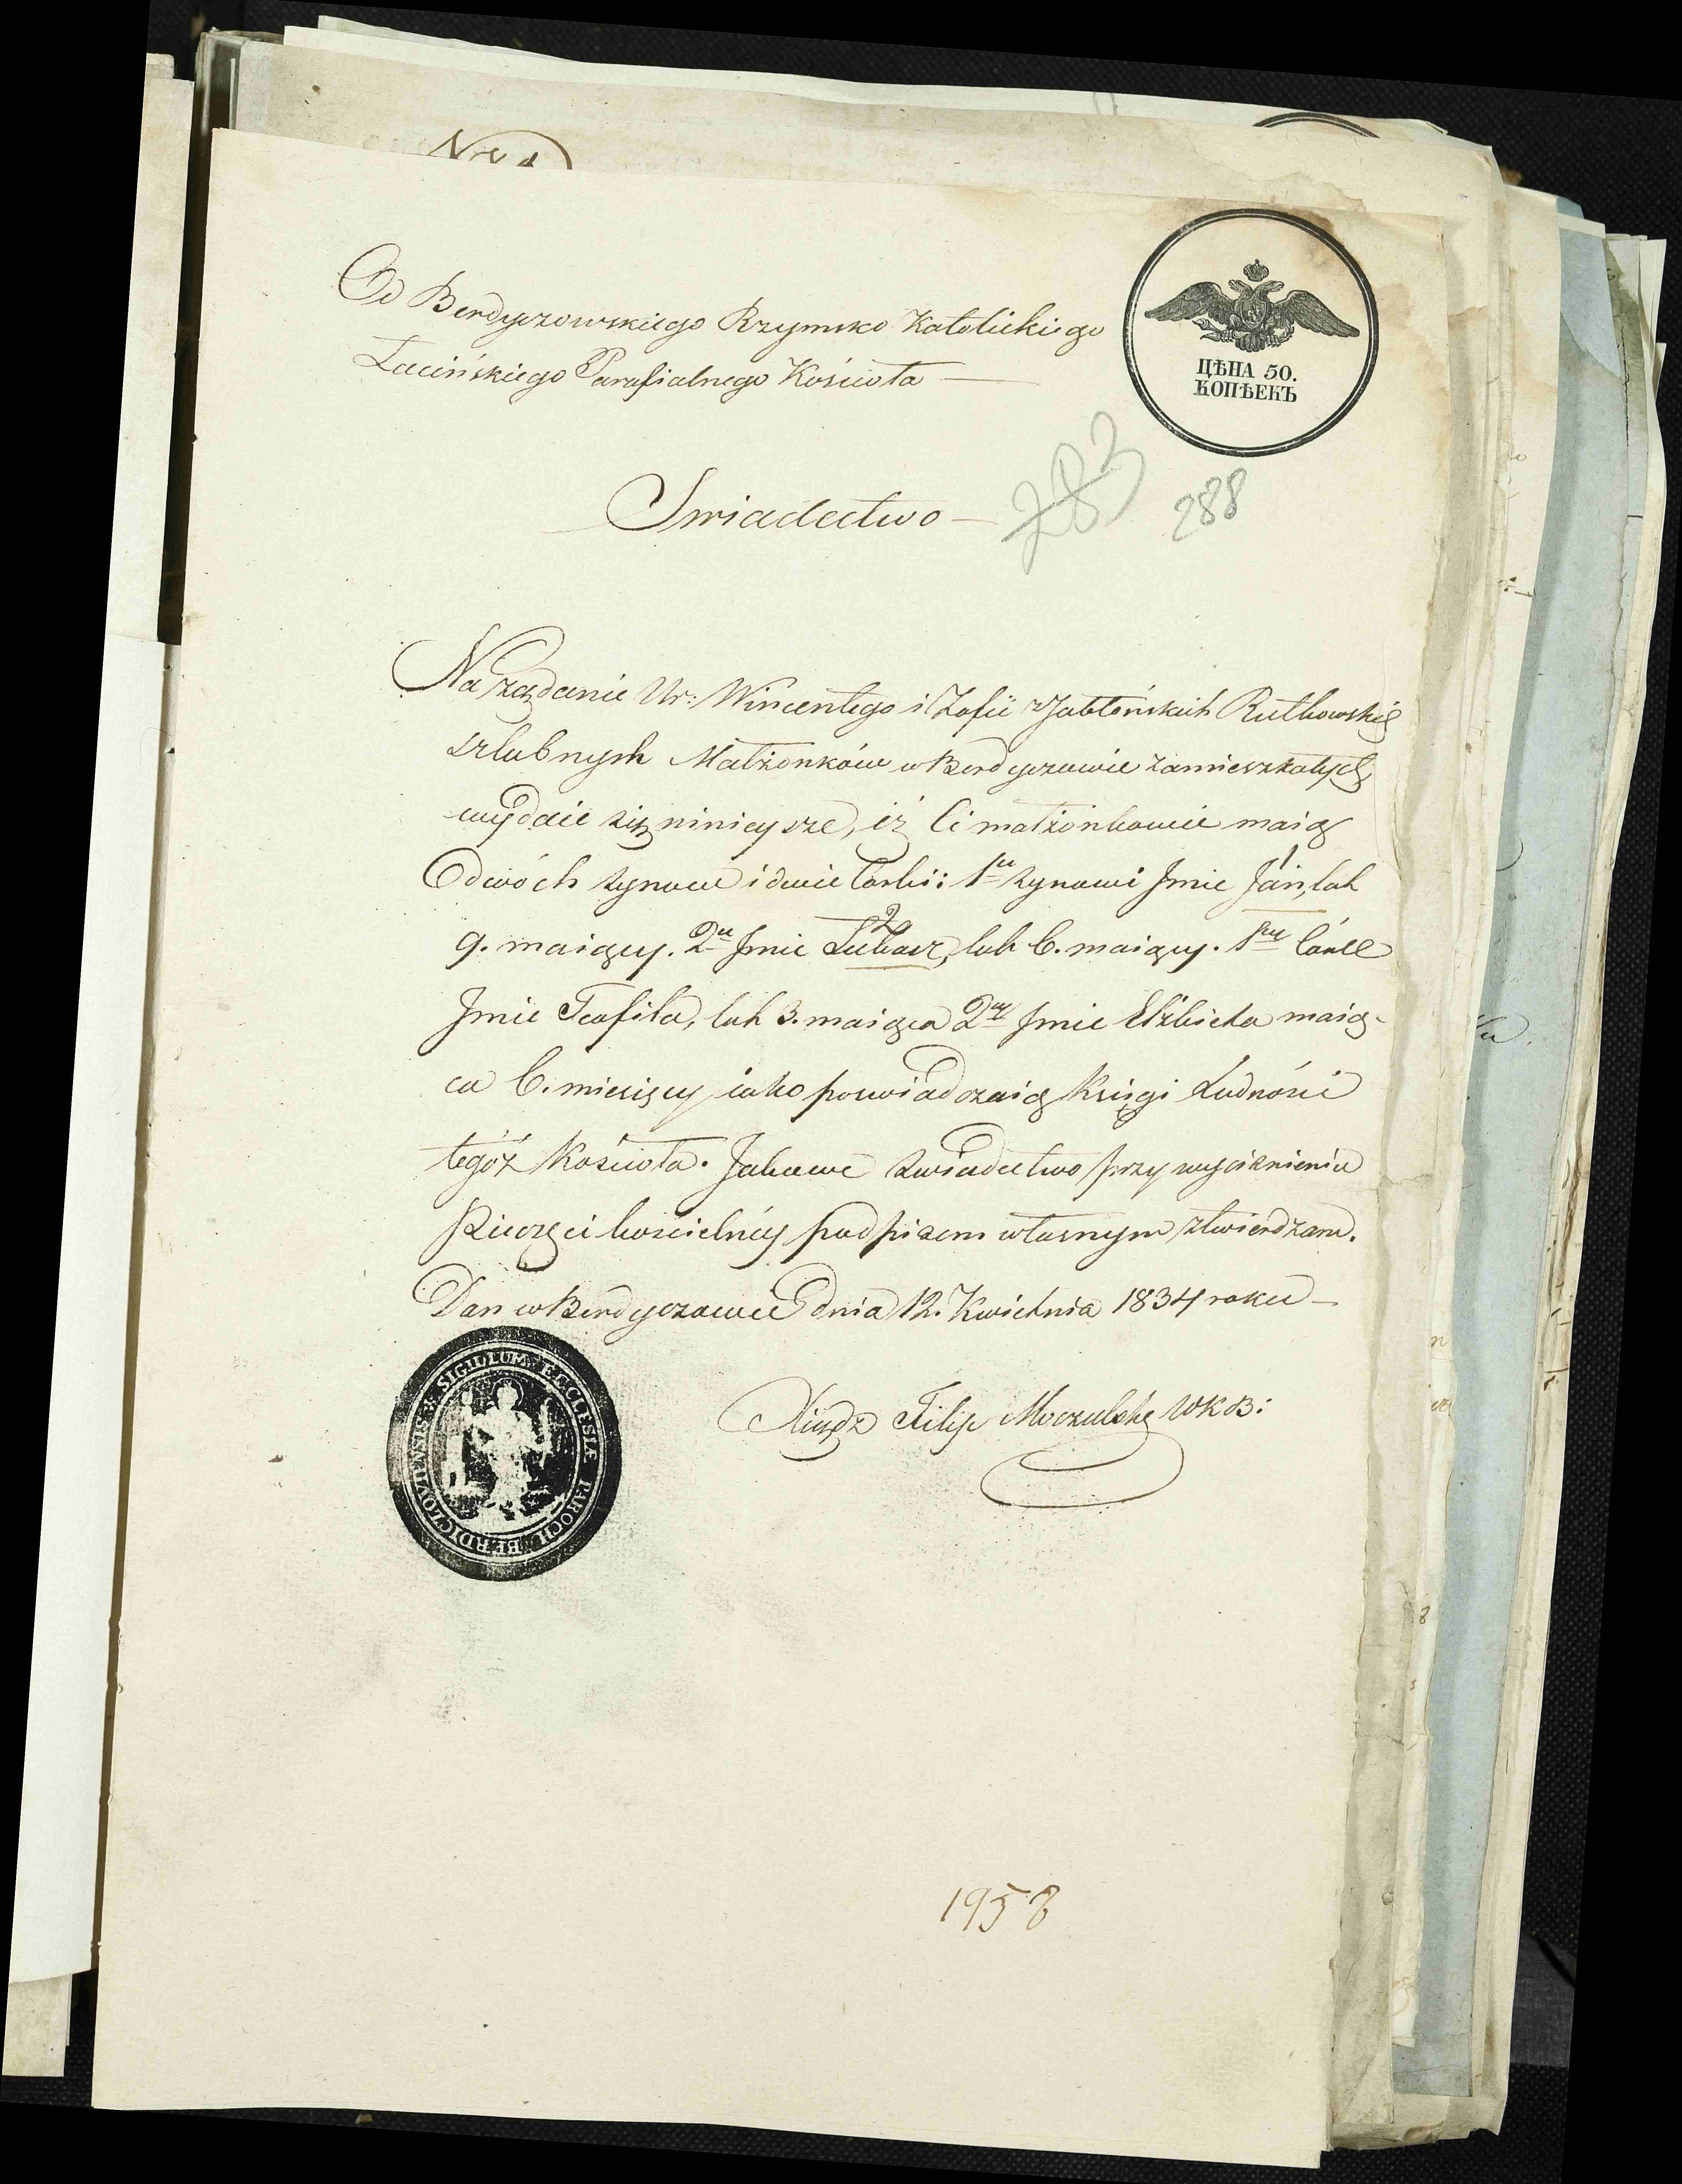 Od Berdyczowskiego Rzymsko Katolickiego
Łacińskiego Parafialnego Kościoła —
ЦѢНА 50.
КОПѢЕКЪ
Swiadectwo —
283
288
Na żądanie Ur: Wincentego i Zofii z Jabłońskich Rutkowskich
szlubnych Małżonków w Berdyczowie zamieszkałych
wydaie się ninieysze, iż Ci małżonkowie maią
dwóch synow i dwie Corki: 1u synowi Jmie Jan, lat
1
9. maiący. 2u Jmie Łukasz, lat 6. maiący. 1ey Córce
2
Jmie Teofila, lat 3. maiąca 2ey Jmie Elżbieta maią-
ca 6. miesięcy iako poswiadczaią Księgi Ludności
tegoż Kościoła. Jakowe swiadectwo przy wyciśnieniu
Pieczęci kościelnéy podpisem własnym stwierdzam.
Dan w Berdyczowie dnia 12. Kwietnia 1834 roku —
SIGILLUM ECCLESIÆ PAROCH BERDICZOVIENSIS
Xiądz Filip Moczulski WKB:
1958